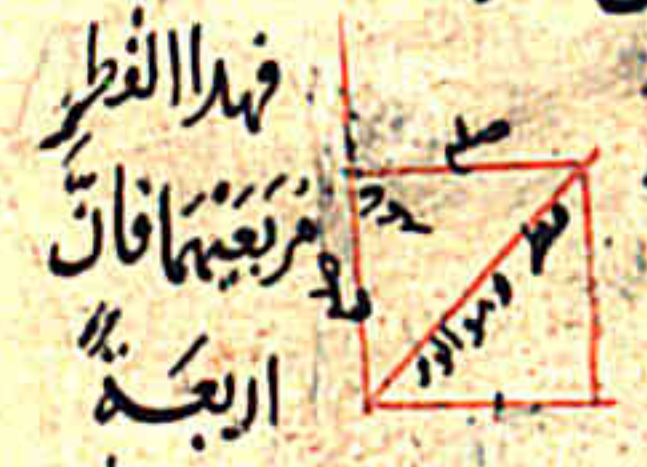 فهذا القطر
مربعيهما فان
اربعة
ضلع
قطر وهو الوتر